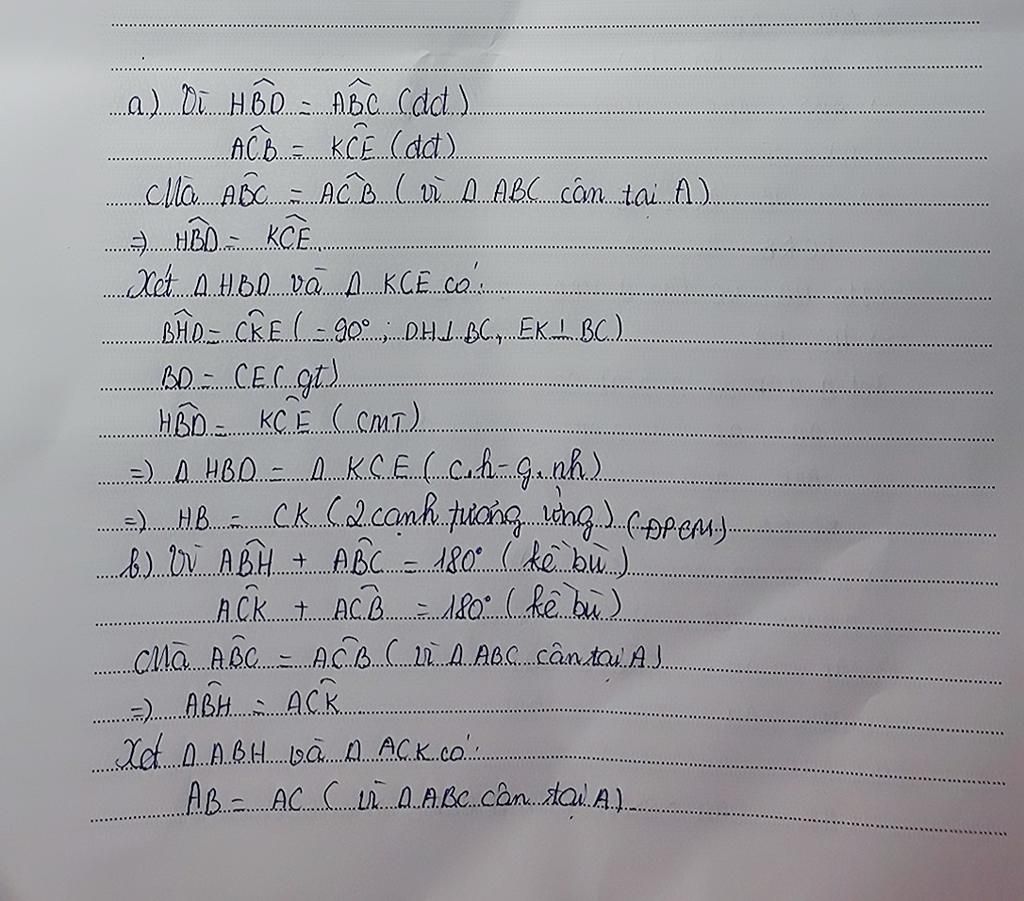 a) Vì HB̂D = AB̂C (đđ)
AĈB = KĈE (đđ)
Mà AB̂C = AĈB ( vì Δ ABC cân tại A)
=> HB̂D = KĈE
Xét Δ HBD và Δ KCE có:
BĤD = CK̂E ( = 90° ; DH⊥BC, EK⊥BC)
BD = CE ( gt)
HB̂D = KĈE ( CMT)
=> Δ HBD = Δ KCE ( c.h-g.nh)
=> HB = CK ( 2 cạnh tương ứng) (ĐPCM)
b) Vì AB̂H + AB̂C = 180° ( kề bù )
AĈK + AĈB = 180° ( kề bù )
Mà AB̂C = AĈB ( vì Δ ABC cân tại A)
=> AB̂H = AĈK
Xét Δ ABH và Δ ACK có:
AB = AC ( vì Δ ABC cân tại A)